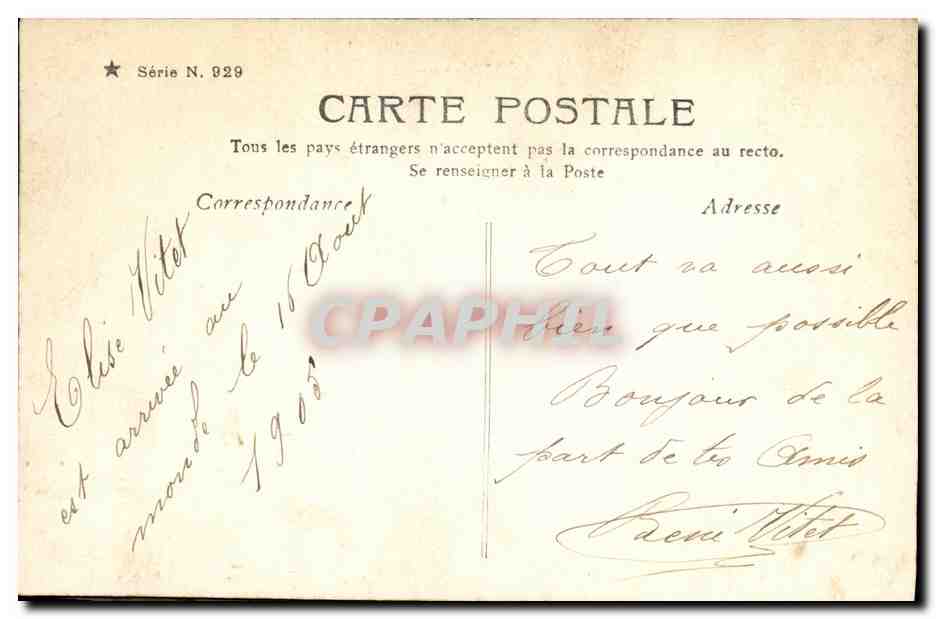 ★ Série N. 929
CARTE POSTALE
Tous les pays étrangers n'acceptent pas la correspondance au recto.
Se renseigner à la Poste
Correspondance
Adresse
Elise Vitet
est arrivée au
monde le 16 Aout
1905
Tout va aussi
bien que possible
Bonjour de la
part de tes Amis
Vitet
CPAPHIL